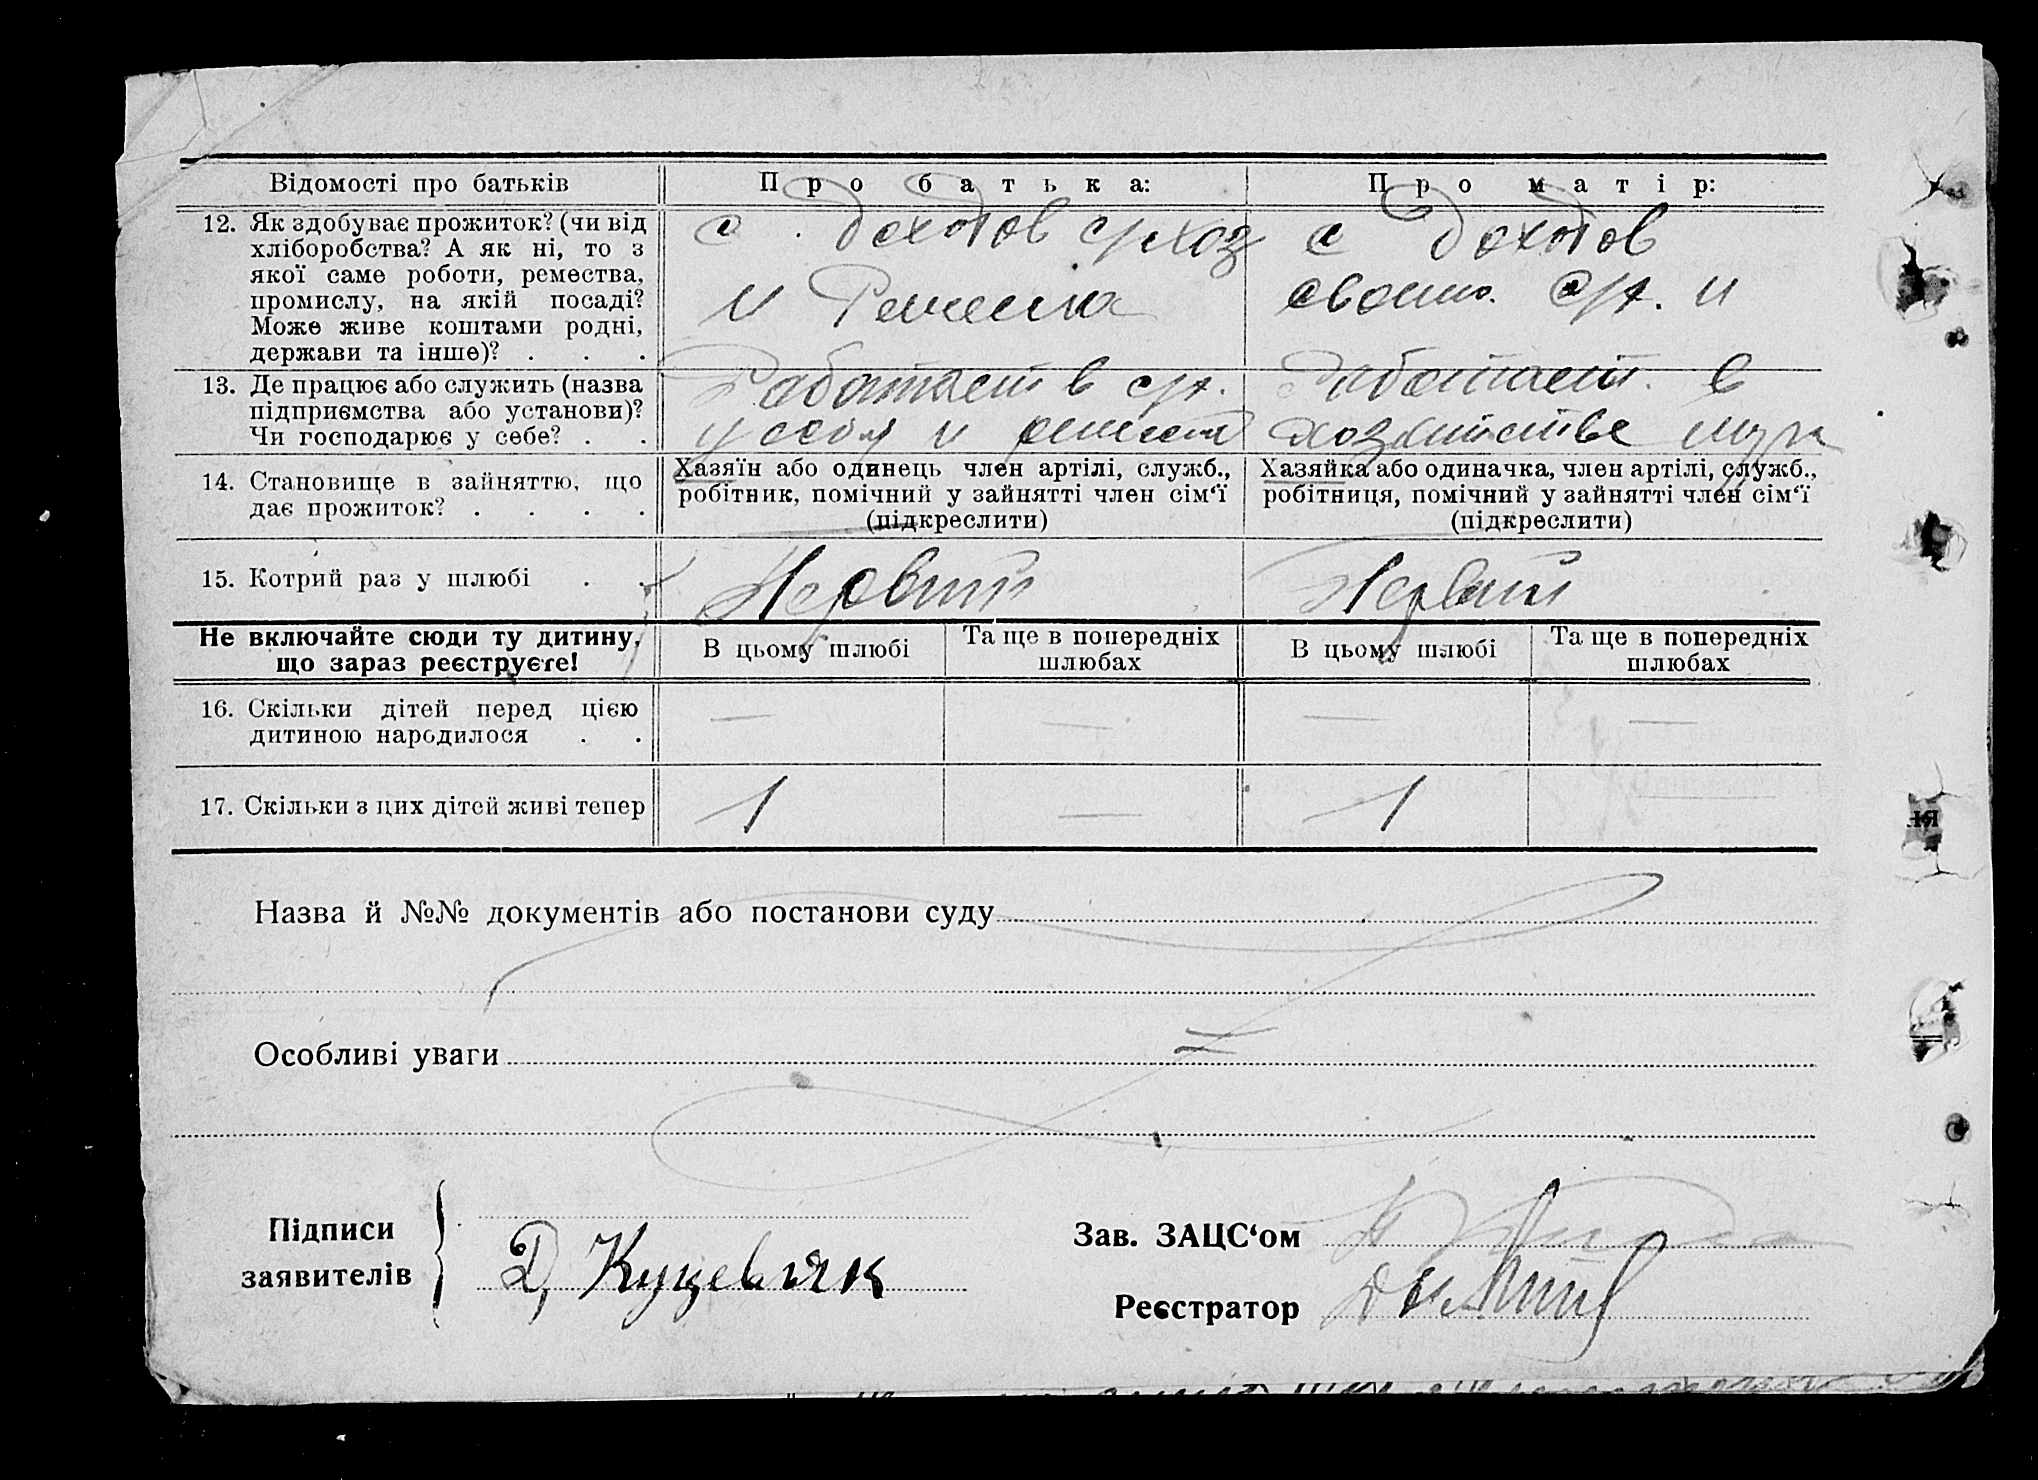 Відомості про батьків
П р о б а т ь к а:
П р о м а т і р:
12. Як здобуває прожиток? (чи від
хліборобства? А як ні, то з
якої саме роботи, ремества,
промислу, на якій посаді?
Може живе коштами родні,
держави та інше)? . . .
с доходов с/хоз
и Ремесла
с доходов
своего с/х. и
13. Де працює або служить (назва
підприємства або установи)?
Чи господарює у себе? . .
Работает в с/х.
у себя и
Работает в
хозяйстве мужа
14. Становище в зайняттю, що
дає прожиток? . . . .
Хазяїн або одинець член артілі, служб.,
робітник, помічний у зайнятті член сім‘ї
(підкреслити)
Хазяйка або одиначка, член артілі, служб.,
робітниця, помічний у зайнятті член сім‘ї
(підкреслити)
15. Котрий раз у шлюбі . .
Первый
Первый
Не включайте сюди ту дитину,
що зараз реєструєте!
В цьому шлюбі
Та ще в попередніх
шлюбах
В цьому шлюбі
Та ще в попередніх
шлюбах
16. Скільки дітей перед цією
дитиною народилося . .
— — — —
17. Скільки з цих дітей живі тепер
1 — 1 —
Назва й №№ документів або постанови суду
Особливі уваги
Підписи
заявителів
Д, Куцевляк
Зав. ЗАЦС‘ом
Реєстратор
ля